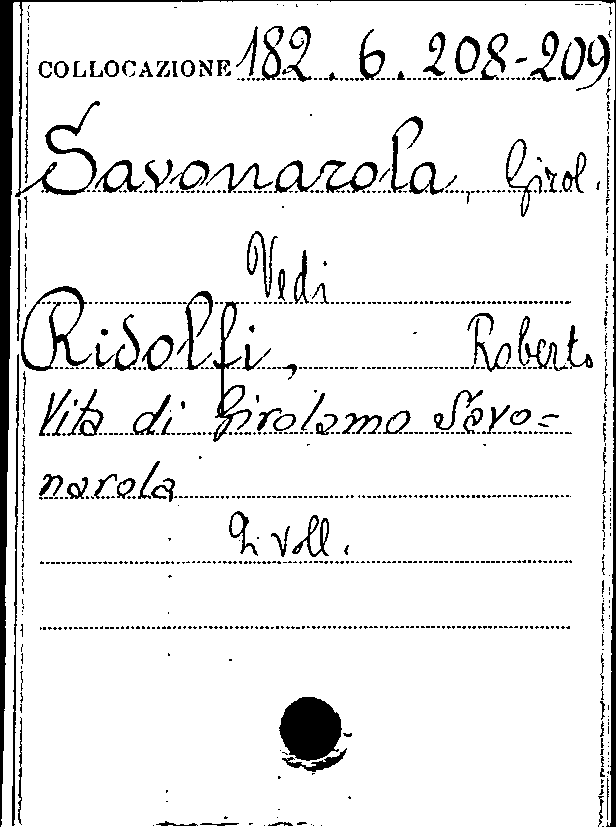 COLLOCAZIONE 182.6.208-209
Savonarola, Girol.
Vedi
Ridolfi, Roberto
Vita di Girolamo Savo=
narola
2 voll.